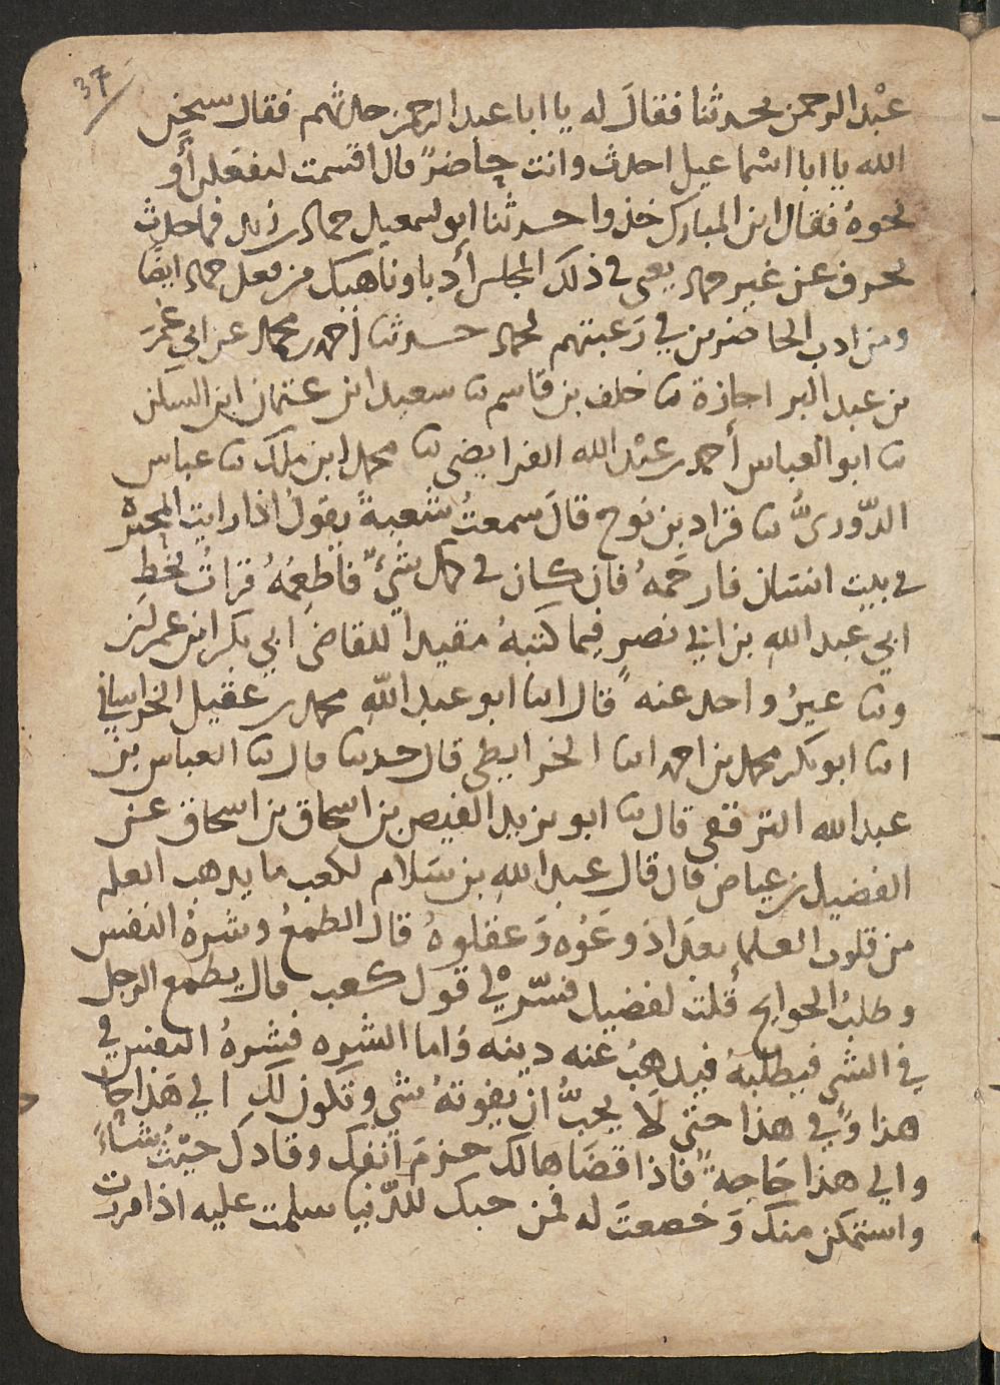 37
عبْد الرحمن يحدثنا فقالَ له يا ابا عبد الرحمن حدثهم فقال سبحن
الله يا ابا اسْماعيل احدث وانت حاضرٌ قال اقسمت لتفعلن أو
نحوهُ فقال ابن المبارك خذوا حدثنا ابو اسمعيل حماد بن زيد فما حدث
بحرف عن غير حماد يعني في ذلك المجلس أدبا وناهيك من فعل حماد ايضا
ومن ادب الحاضرين في رَغبتهم لحماد حدثنا احمد بن محمد عن ابي عُمرَ
بن عبد البر اجازة نا خلف بن قاسم نا سعيد ابن عثمان ابن السكن
نا ابو العباس أحمد بن عبْد الله الفرايضي نا محمد ابن ملك نا عباس
الدّوريُّ نا قراد بن نوح قالَ سمعتُ شعبةً يقولُ اذا رايت المحبرة
في بيت انسان فارحَمهُ فان كان في كمك شيْءٌ فاطعِمْهُ قراتُ بخطِ
ابي عبد الله بن ابي نصرٍ فيما كتبهُ مقيدا للقاضي ابي بكر ابن عمر
ونا غيرُ واحد عنه قال انا ابو عبد اللّه محمد بن عقيل الخراساني
انا ابو بكر محمد بن احمد انا الخرايطي قال حدثنا قال نا العباس بن
عبد الله الترقفي قال نا ابو يزيد الفيض بن اسحاق بن اسحاق عن
الفضيل بن عياض قال قال عبد الله بن سَلام لكعب ما يذهب العلم
من قلوب العلما بعدَ اذ وعَوْه وَعقلوهُ قال الطمعُ وشرهُ النفس
وطلبُ الحوايج قُلت لفضيل فسّرْ لي قول كعب قال يطمع الرجل
في الشي فيطلبهُ فيذهبُ عنه دينه وَاما الشره فشرهُ النفس في
هذا وَفي هذا حتى لَا يحبُّ ان يفوتهُ شي وتكون لك الي هَذا حَاجَة
والي هذا حَاجةٌ فاذا قضَاها لك خزمَ انفك وقادكَ حيْثُ شاءَ
واستمكن منك وَخضعتَ له فمن حبك للدّنيا سلمت عليه اذا مررت